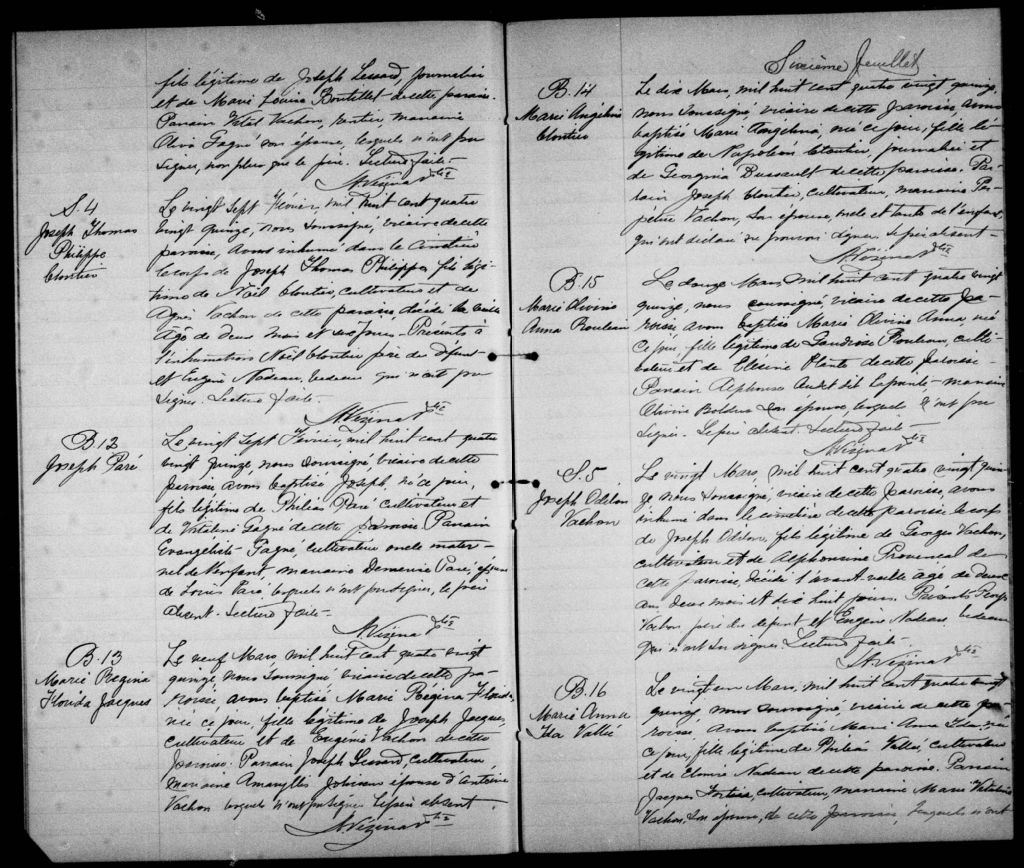 fils légitime de Joseph Lessard, journalier
et de Marie Louise Boutillet de cette paroisse.
Parrain Vital Vachon, rentier, marraine
Gagné son épouse, lesquels n'ont pu
signer, non plus que le père. Lecture faite-
N. Vézina Ptre
S. 4
Joseph Thomas
Philippe
Cloutier
Le vingt sept Février, mil huit cent quatre
vingt quinze, nous soussigné, vicaire de cette
paroisse, avons inhumé dans le cimetière
le corps de Joseph Thomas Philippe, fils légi-
time de Noël Cloutier, cultivateur et de
Vachon de cette paroisse décédé la veille
âgé de deux mois et jours. Présents à
l'inhumation Noël Cloutier père du défunt
et Eugène Nadeau, bedeau qui n'ont pu
signer. Lecture faite-
N. Vézina Ptre
B. 12
Joseph Paré
Le vingt sept Février, mil huit cent quatre
vingt quinze, nous soussigné, vicaire de cette
paroisse avons baptisé Joseph, né ce jour,
fils légitime de Philéas Paré cultivateur et
de Gagné de cette paroisse Parrain
Evangéliste Gagné, cultivateur oncle mater-
nel de l'enfant, marraine Demerise Paré, épouse
de Louis Paré, lesquels n'ont pu signer, le père
absent. Lecture faite-
N. Vézina Ptre
B. 13
Marie Régina
Florida Jacques
Le neuf Mars, mil huit cent quatre vingt
quinze, nous soussigné, vicaire de cette pa-
roisse, avons baptisé Marie Régina Florida,
née ce jour, fille légitime de Joseph Jacques,
cultivateur et de Eugénie Vachon de cette
paroisse. Parrain Joseph Lessard, cultivateur,
marraine épouse d'Antoine
Vachon lesquels n'ont pu signer. Le père absent
N. Vézina Ptre
Sixième feuillet
B. 14
Marie Angélina
Cloutier
Le dix Mars, mil huit cent quatre vingt quinze,
nous soussigné, vicaire de cette paroisse, avons
baptisé Marie Angélina, née ce jour, fille lé-
gitime de Napoléon Cloutier, journalier et
de Georgina de cette paroisse. Par-
rain Joseph Cloutier, cultivateur, marraine Per-
pétue Vachon, son épouse, oncle et tante de l'enfant,
qui ont déclaré ne pouvoir signer. Le père absent-
N. Vézina Ptre
B. 15
Marie Olivine
Anna Rouleau
Le douze Mars, mil huit cent quatre vingt
quinze, nous soussigné, vicaire de cette pa-
roisse avons baptisé Marie Olivine Anna, née
ce jour, fille légitime de Gaudiose Rouleau, culti-
vateur et de Plante de cette paroisse
Parrain Alphonse Audet dit Lapointe- marraine
Olivine Bolduc son épouse, lesquels n'ont pu
signer. Le père absent. Lecture faite-
N. Vézina Ptre
S. 5
Joseph Odilon
Vachon
Le vingt Mars, mil huit cent quatre vingt quin-
ze nous soussigné, vicaire de cette paroisse, avons
inhumé dans le cimetière de cette paroisse le corps
de Joseph Odilon, fils légitime de Georges Vachon,
cultivateur et de Alphonsine Provencal de
cette paroisse, décédé l'avant veille âgé de deux
ans deux mois et dix huit jours. Présents Georges
Vachon père du défunt et Eugène Nadeau, bedeau
qui n'ont su signer. Lecture faite-
N. Vézina Ptre
B. 16
Marie Anna
Ida Vallée
Le vingt un Mars, mil huit cent quatre vingt
quinze, nous soussigné, vicaire de cette pa-
roisse, avons baptisé Marie Anna Ida née
ce jour, fille légitime de Philéas Vallée, cultivateur
et de Nadeau de cette paroisse. Parrain
Jacques cultivateur, marraine Marie
Vachon, son épouse, de cette paroisse, lesquels n'ont